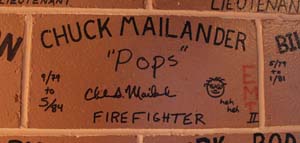 LIEUTENANT
LIEUTENANT
CHUCK MAILANDER
"Pops"
9/79
to
5/84
Chuck S. Mailander
heh
heh
EMT
II
FIREFIGHTER
5/79
to
1/81